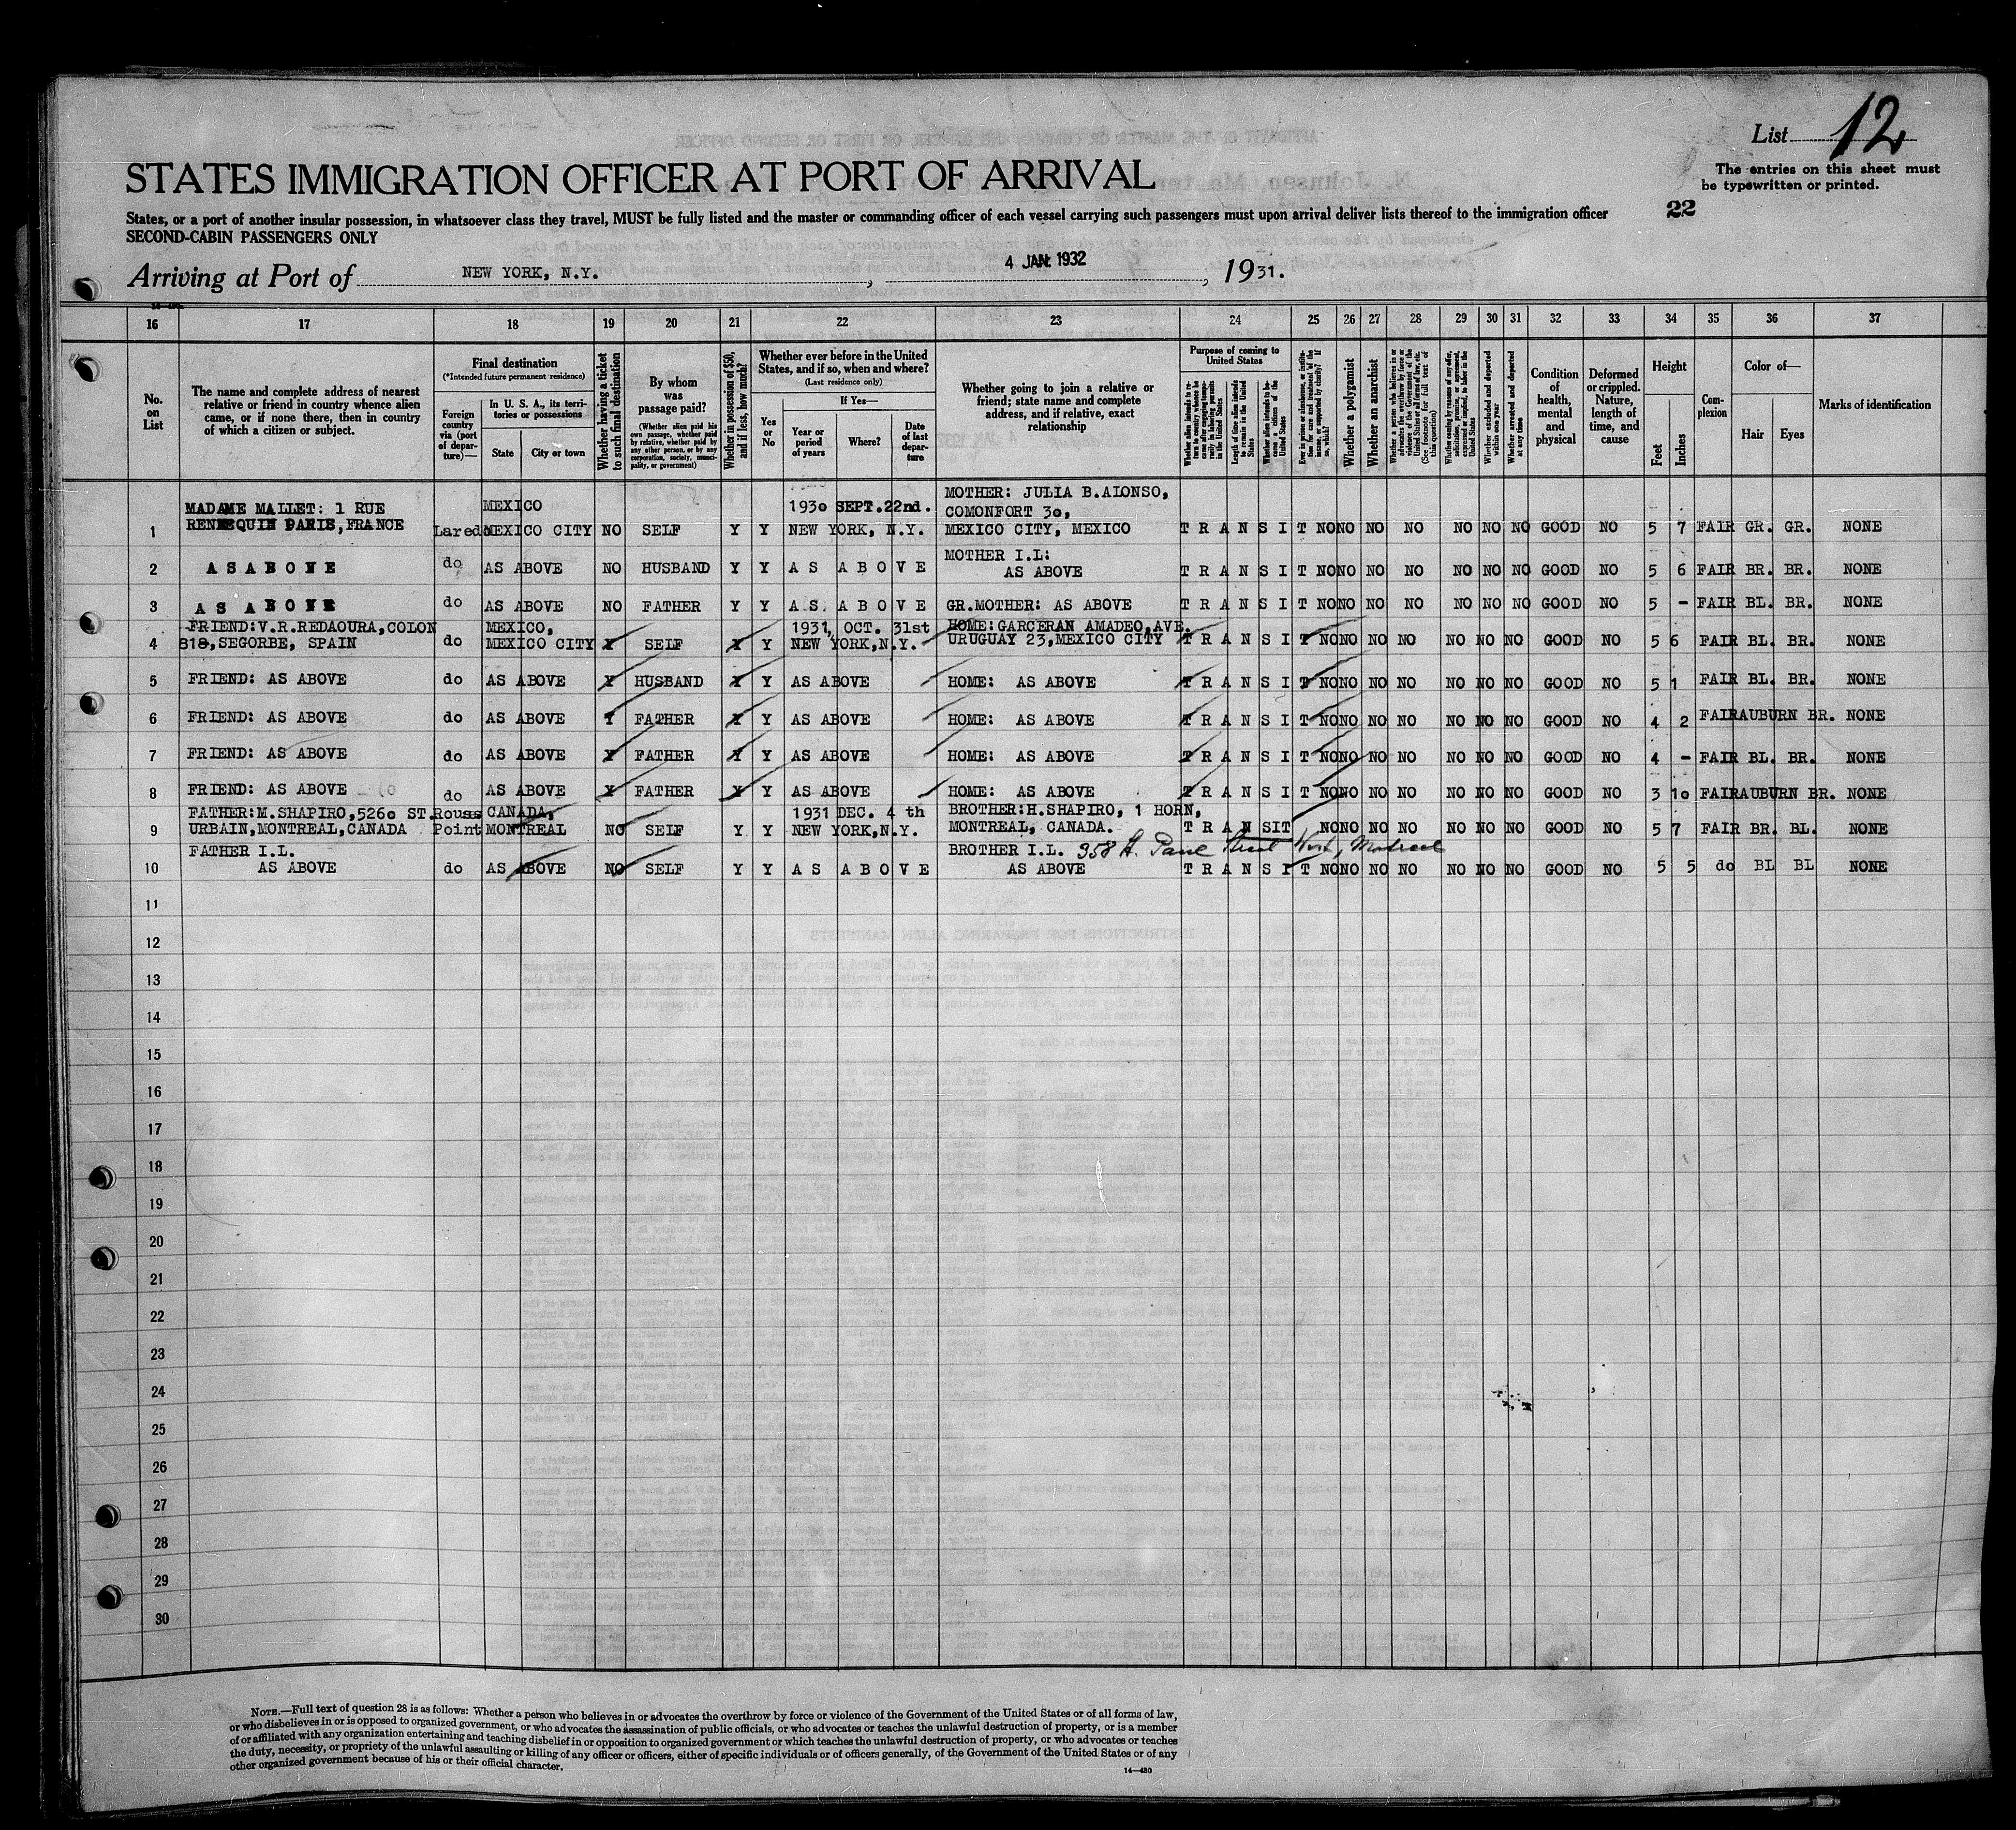 List 12
The entries on this sheet must
be typewritten or printed.
22
STATES IMMIGRATION OFFICER AT PORT OF ARRIVAL
States, or a port of another insular possession, in whatsoever class they travel, MUST be fully listed and the master or commanding officer of each vessel carrying such passengers must upon arrival deliver lists thereof to the immigration officer
SECOND-CABIN PASSENGERS ONLY
Arriving at Port of NEW YORK, N.Y. , 4 JAN 1932 , 1931.
16 17 18 19 20 21 22 23 24 25 26 27 28 29 30 31 32 33 34 35 36 37
No. on List
The name and complete address of nearest relative or friend in country whence alien came, or if none there, then in country of which a citizen or subject.
Final destination
(*Intended future permanent residence)
Foreign country via (port of departure)—
In U. S. A., its territories or possessions
State
City or town
Whether having a ticket to such final destination
By whom was passage paid?
(Whether alien paid his own passage, whether paid by relative, whether paid by any other person, or by any corporation, society, municipality, or government)
Whether in possession of $50, and if less, how much?
Whether ever before in the United States, and if so, when and where?
(Last residence only)
Yes or No
If Yes—
Year or period of years
Where?
Date of last departure
Whether going to join a relative or friend; state name and complete address, and if relative, exact relationship
Purpose of coming to United States
Whether alien intends to return to country whence he came after engaging temporarily in laboring pursuits in the United States
Length of time alien intends to remain in the United States
Whether alien intends to become a citizen of the United States
Ever in prison or almshouse, or institution for care and treatment of the insane, or supported by charity? If so, which?
Whether a polygamist
Whether an anarchist
Whether a person who believes in or advocates the overthrow by force or violence of the Government of the United States or all forms of law, etc. (See footnote for full text of this question)
Whether coming by reasons of any offer, solicitation, promise, or agreement, expressed or implied, to labor in the United States
Whether excluded and deported within one year
Whether arrested and deported at any time
Condition of health, mental and physical
Deformed or crippled. Nature, length of time, and cause
Height
Feet
Inches
Complexion
Color of—
Hair
Eyes
Marks of identification
MADAME MALLET: 1 RUE MEXICO 1930 SEPT.22nd. MOTHER: JULIA B.ALONSO,
COMONFORT 30,
1 RENNEQUIN PARIS, FRANCE Laredo MEXICO CITY NO SELF Y Y NEW YORK, N.Y. MEXICO CITY, MEXICO T R A N S I T NO NO NO NO NO NO NO GOOD NO 5 7 FAIR GR. GR. NONE
MOTHER I.L:
2 A S A B O V E do AS ABOVE NO HUSBAND Y Y A S A B O V E AS ABOVE T R A N S I T NO NO NO NO NO NO NO GOOD NO 5 6 FAIR BR. BR. NONE
3 A S A B O V E do AS ABOVE NO FATHER Y Y A S A B O V E GR.MOTHER: AS ABOVE T R A N S I T NO NO NO NO NO NO NO GOOD NO 5 - FAIR BL. BR. NONE
FRIEND:V.R.REDAOURA,COLON MEXICO, 1931, OCT. 31st HOME:GARCERAN AMADEO,AVE.
4 818,SEGORBE, SPAIN do MEXICO CITY Y SELF Y Y NEW YORK,N.Y. URUGUAY 23,MEXICO CITY T R A N S I T NO NO NO NO NO NO NO GOOD NO 5 6 FAIR BL. BR. NONE
5 FRIEND: AS ABOVE do AS ABOVE Y HUSBAND Y Y AS ABOVE HOME: AS ABOVE T R A N S I T NO NO NO NO NO NO NO GOOD NO 5 1 FAIR BL. BR. NONE
6 FRIEND: AS ABOVE do AS ABOVE Y FATHER Y Y AS ABOVE HOME: AS ABOVE T R A N S I T NO NO NO NO NO NO NO GOOD NO 4 2 FAIR AUBURN BR. NONE
7 FRIEND: AS ABOVE do AS ABOVE Y FATHER Y Y AS ABOVE HOME: AS ABOVE T R A N S I T NO NO NO NO NO NO NO GOOD NO 4 - FAIR BL. BR. NONE
8 FRIEND: AS ABOVE do AS ABOVE Y FATHER Y Y AS ABOVE HOME: AS ABOVE T R A N S I T NO NO NO NO NO NO NO GOOD NO 3 10 FAIR AUBURN BR. NONE
FATHER:M.SHAPIRO,5260 ST. Rouses CANADA, 1931 DEC. 4 th BROTHER:H.SHAPIRO, 1 HORN,
9 URBAIN,MONTREAL,CANADA Point MONTREAL NO SELF Y Y NEW YORK,N.Y. MONTREAL, CANADA. T R A N SIT NO NO NO NO NO NO NO GOOD NO 5 7 FAIR BR. BL. NONE
FATHER I.L. BROTHER I.L. 358 Street West, Montreal
10 AS ABOVE do AS ABOVE NO SELF Y Y A S A B O V E AS ABOVE T R A N S I T NO NO NO NO NO NO NO GOOD NO 5 5 do BL BL NONE
11
12
13
14
15
16
17
18
19
20
21
22
23
24
25
26
27
28
29
30
NOTE.—Full text of question 28 is as follows: Whether a person who believes in or advocates the overthrow by force or violence of the Government of the United States or of all forms of law,
or who disbelieves in or is opposed to organized government, or who advocates the assassination of public officials, or who advocates or teaches the unlawful destruction of property, or is a member
of or affiliated with any organization entertaining and teaching disbelief in or opposition to organized government or which teaches the unlawful destruction of property, or who advocates or teaches
the duty, necessity, or propriety of the unlawful assaulting or killing of any officer or officers, either of specific individuals or of officers generally, of the Government of the United States or of any
other organized government because of his or their official character.
14—430